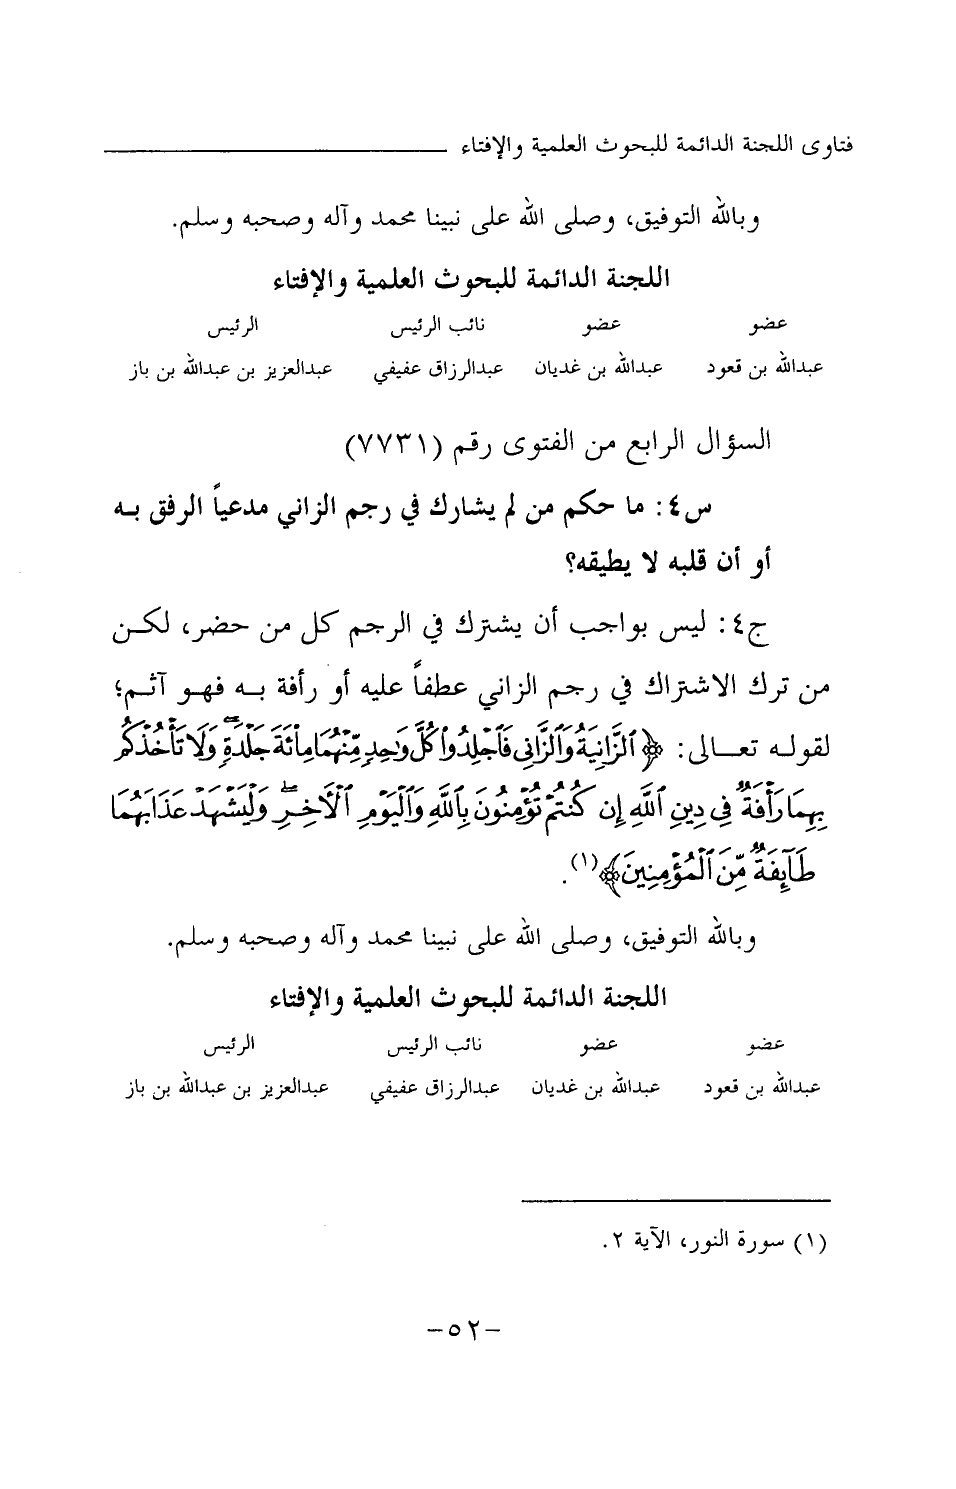 فتاوى اللجنة الدائمة للبحوث العلمية والإفتاء
وبالله التوفيق، وصلى الله على نبينا محمد وآله وصحبه وسلم.
اللجنة الدائمة للبحوث العلمية والإفتاء
عضو عضو نائب الرئيس الرئيس
عبدالله بن قعود عبدالله بن غديان عبدالرزاق عفيفي عبدالعزيز بن عبدالله بن باز
السؤال الرابع من الفتوى رقم (٧٧٣١)
س٤: ما حكم من لم يشارك في رجم الزاني مدعياً الرفق بـه
أو أن قلبه لا يطيقه؟
ج٤: ليس بواجب أن يشترك في الرجم كل من حضر، لكـن
من ترك الاشتراك في رجم الزاني عطفاً عليه أو رأفة بـه فهـو آثـم؛
لقولـه تعـالى: ﴿ٱلزَّانِيَةُ وَٱلزَّانِي فَٱجْلِدُوا۟ كُلَّ وَٰحِدٍ مِّنْهُمَا مِا۟ئَةَ جَلْدَةٍ ۖ وَلَا تَأْخُذْكُم
بِهِمَا رَأْفَةٌ فِي دِينِ ٱللَّهِ إِن كُنتُمْ تُؤْمِنُونَ بِٱللَّهِ وَٱلْيَوْمِ ٱلْآخِرِ ۖ وَلْيَشْهَدْ عَذَابَهُمَا
طَآئِفَةٌ مِّنَ ٱلْمُؤْمِنِينَ﴾(١).
وبالله التوفيق، وصلى الله على نبينا محمد وآله وصحبه وسلم.
اللجنة الدائمة للبحوث العلمية والإفتاء
عضو عضو نائب الرئيس الرئيس
عبدالله بن قعود عبدالله بن غديان عبدالرزاق عفيفي عبدالعزيز بن عبدالله بن باز
(١) سورة النور، الآية ٢.
-٥٢-